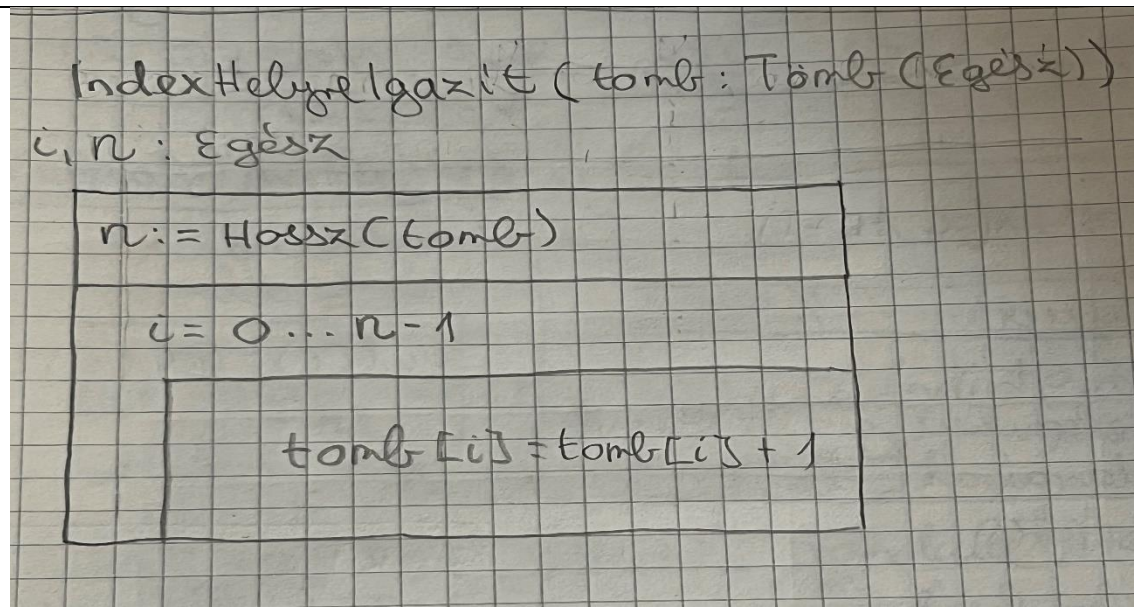 IndexHelyreIgazít (tomb: Tömb (Egész))
i, n : Egész
n := Hossz(tomb)
i = 0 ... n - 1
tomb[i] = tomb[i] + 1